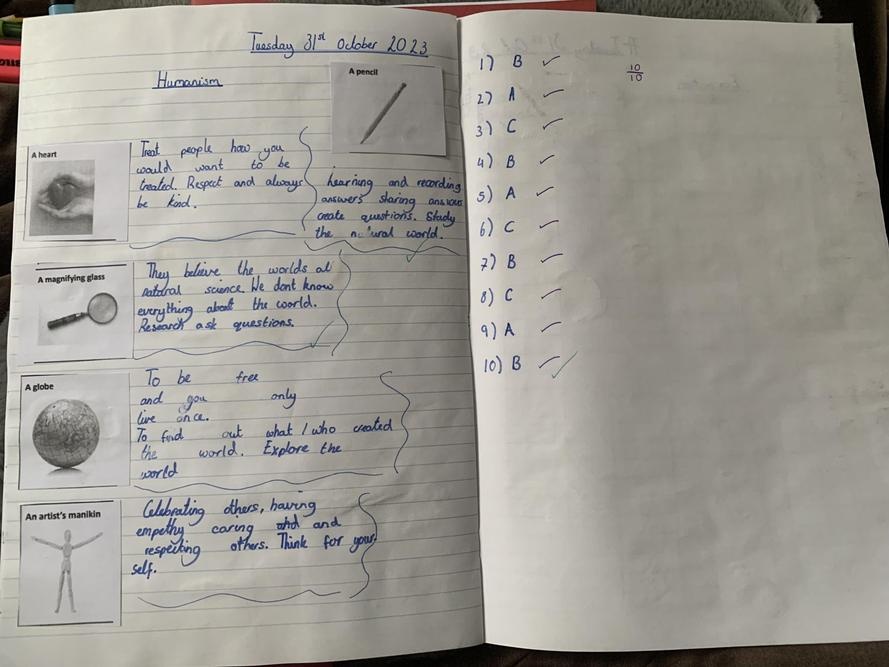 Tuesday 31st October 2023
Humanism
A pencil
hearning and recording
answers sharing answers
create questions. Study
the natural world.
A heart
Treat people how you
would want to be
treated. Respect and always
be kind.
A magnifying glass
They believe the worlds at
natural science. We dont know
everything about the world.
Research ask questions.
A globe
To be free
and you only
live once.
To find out what / who created
the world. Explore the
world
An artist's manikin
Celebrating others, having
empethy caring and and
respecting others. Think for your
self.
1) B ✓
2) A ✓
3) C ✓
4) B ✓
5) A ✓
6) C ✓
7) B ✓
8) C ✓
9) A ✓
10) B ✓
10
10